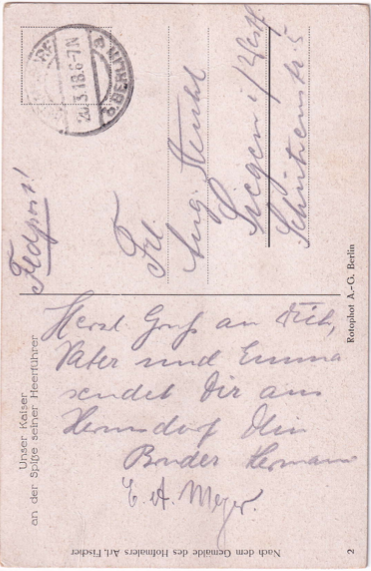 Feldpost!
20.3.18.6-7N
b. BERLIN
Frl.
Aug.
Siegen i/Westf.
Schützenstr. 5
Herzl. Gruß an Dich,
Vater und Emma
sendet Dir aus
Hermsdorf Dein
Bruder Hermann
E. A. Meyer.
Unser Kaiser
an der Spitze seiner Heerführer
Rotophot A.-G. Berlin
Nach dem Gemälde des Hofmalers Art. Fischer
2